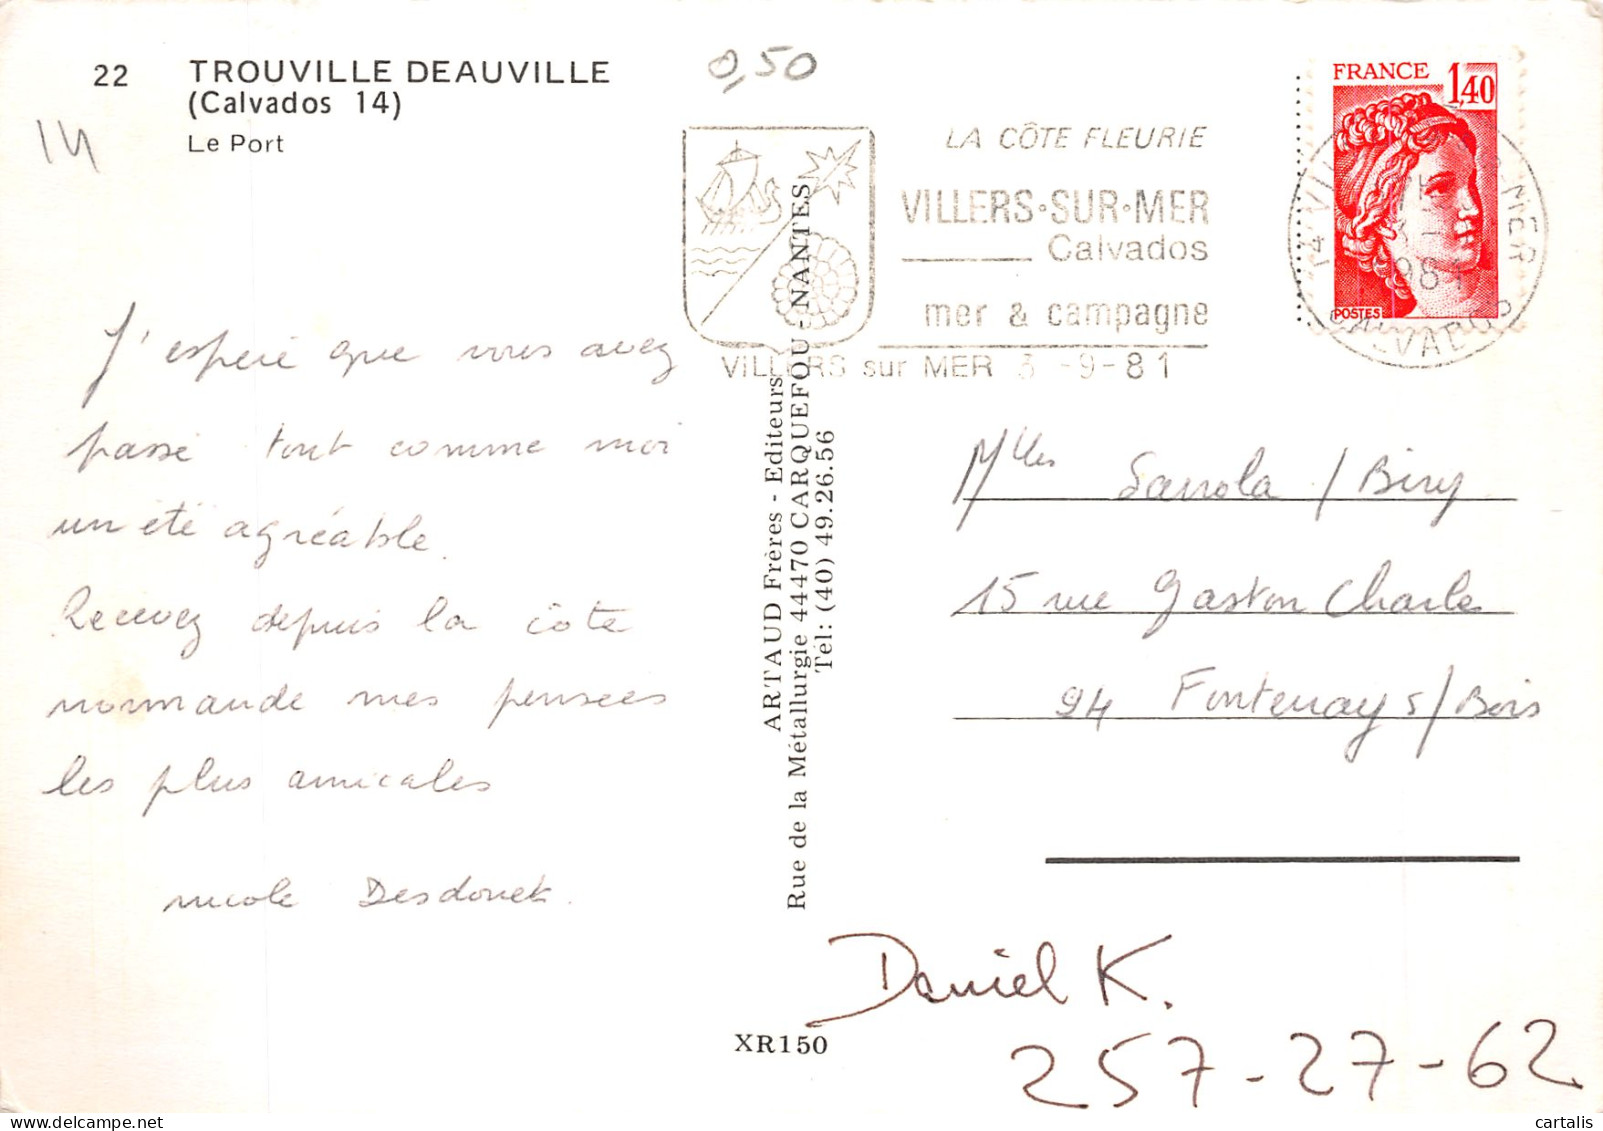 22 TROUVILLE DEAUVILLE
(Calvados 14)
Le Port
14
0,50
LA CÔTE FLEURIE
VILLERS·SUR·MER
Calvados
mer & campagne
VILLERS sur MER 3 -9-81
FRANCE 1,40
POSTES
J'espère que vous avez
passé tout comme moi
un été agréable.
Recevez depuis la côte
normande mes pensées
les plus amicales
nicole Desdouet.
ARTAUD Frères - Editeurs
Rue de la Métallurgie 44470 CARQUEFOU - NANTES
Tél: (40) 49.26.56
Mlles Sanola / Biry
15 rue Gaston Charle
94 Fontenay s/Bois
Daniel K.
257-27-62
XR150
cartalis
delcampe.net